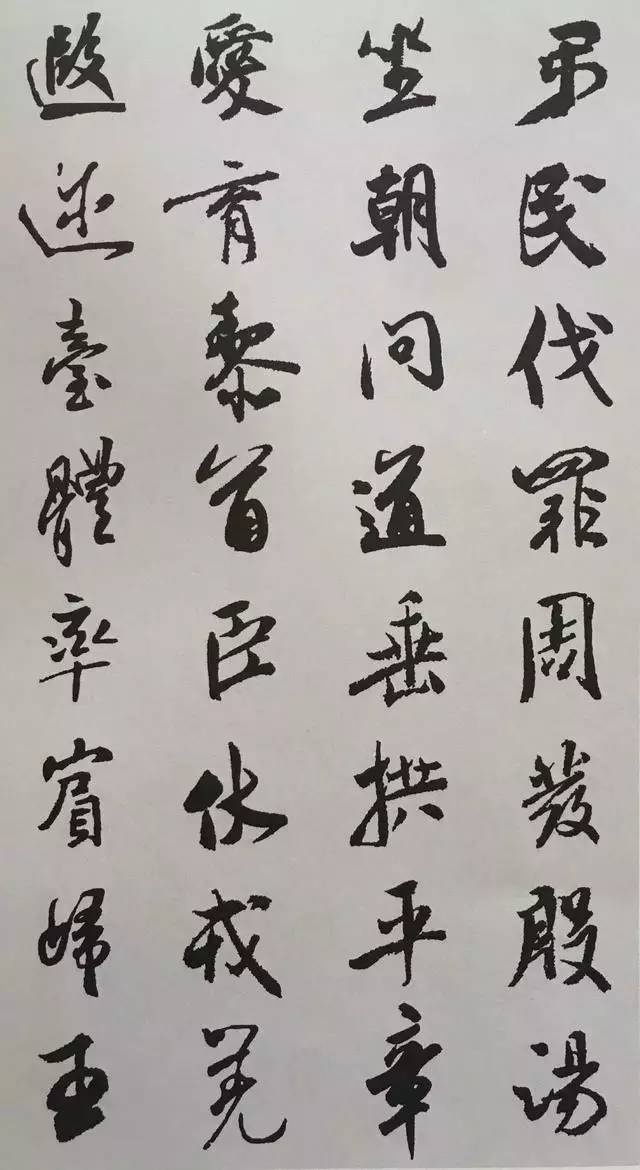 弔民伐罪周發殷湯
坐朝問道垂拱平章
愛育黎首臣伏戎羌
遐迩壹體率賓歸王